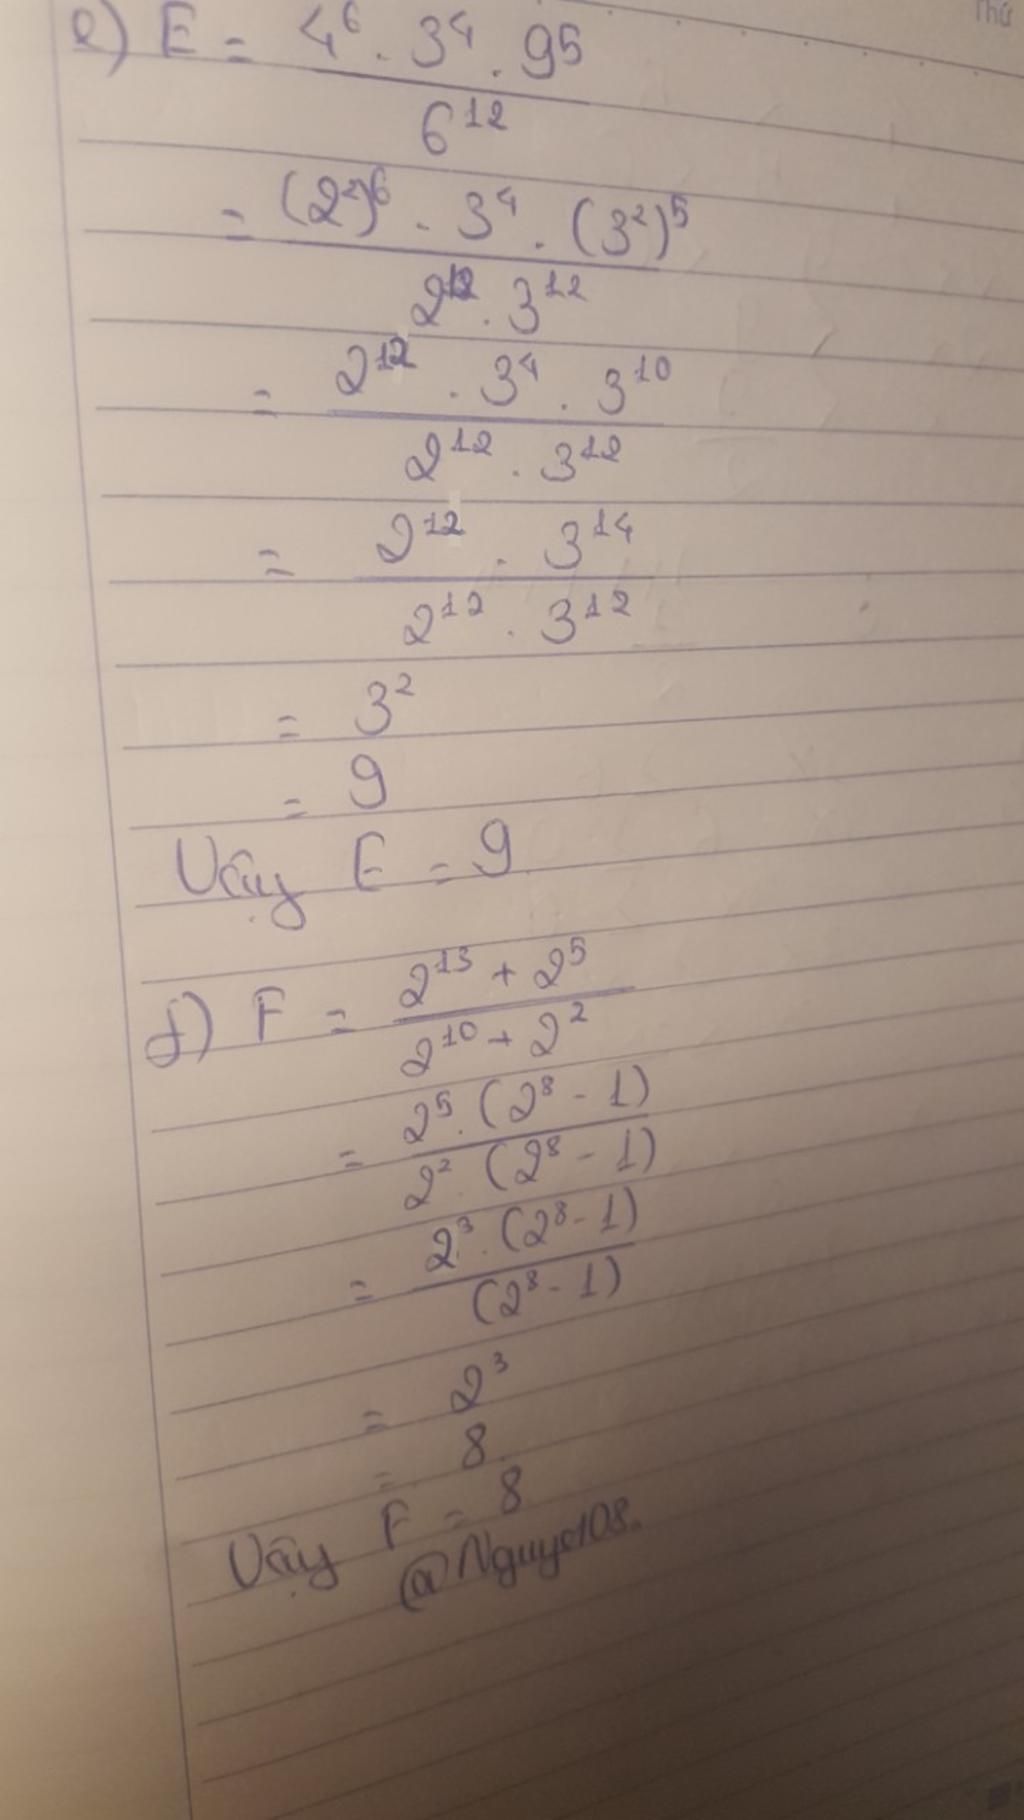 Thứ
e) E = 4⁶ . 3⁴ . 9⁵
6¹²
= (2²)⁶ . 3⁴ . (3²)⁵
2¹² . 3¹²
= 2¹² . 3⁴ . 3¹⁰
2¹² . 3¹²
= 2¹² . 3¹⁴
2¹² . 3¹²
= 3²
= 9
Vậy E = 9
f) F = 2¹³ + 2⁵
2¹⁰ + 2²
= 2⁵ . (2⁸ - 1)
2² . (2⁸ - 1)
= 2³ . (2⁸ - 1)
(2⁸ - 1)
= 2³
= 8
Vậy F = 8